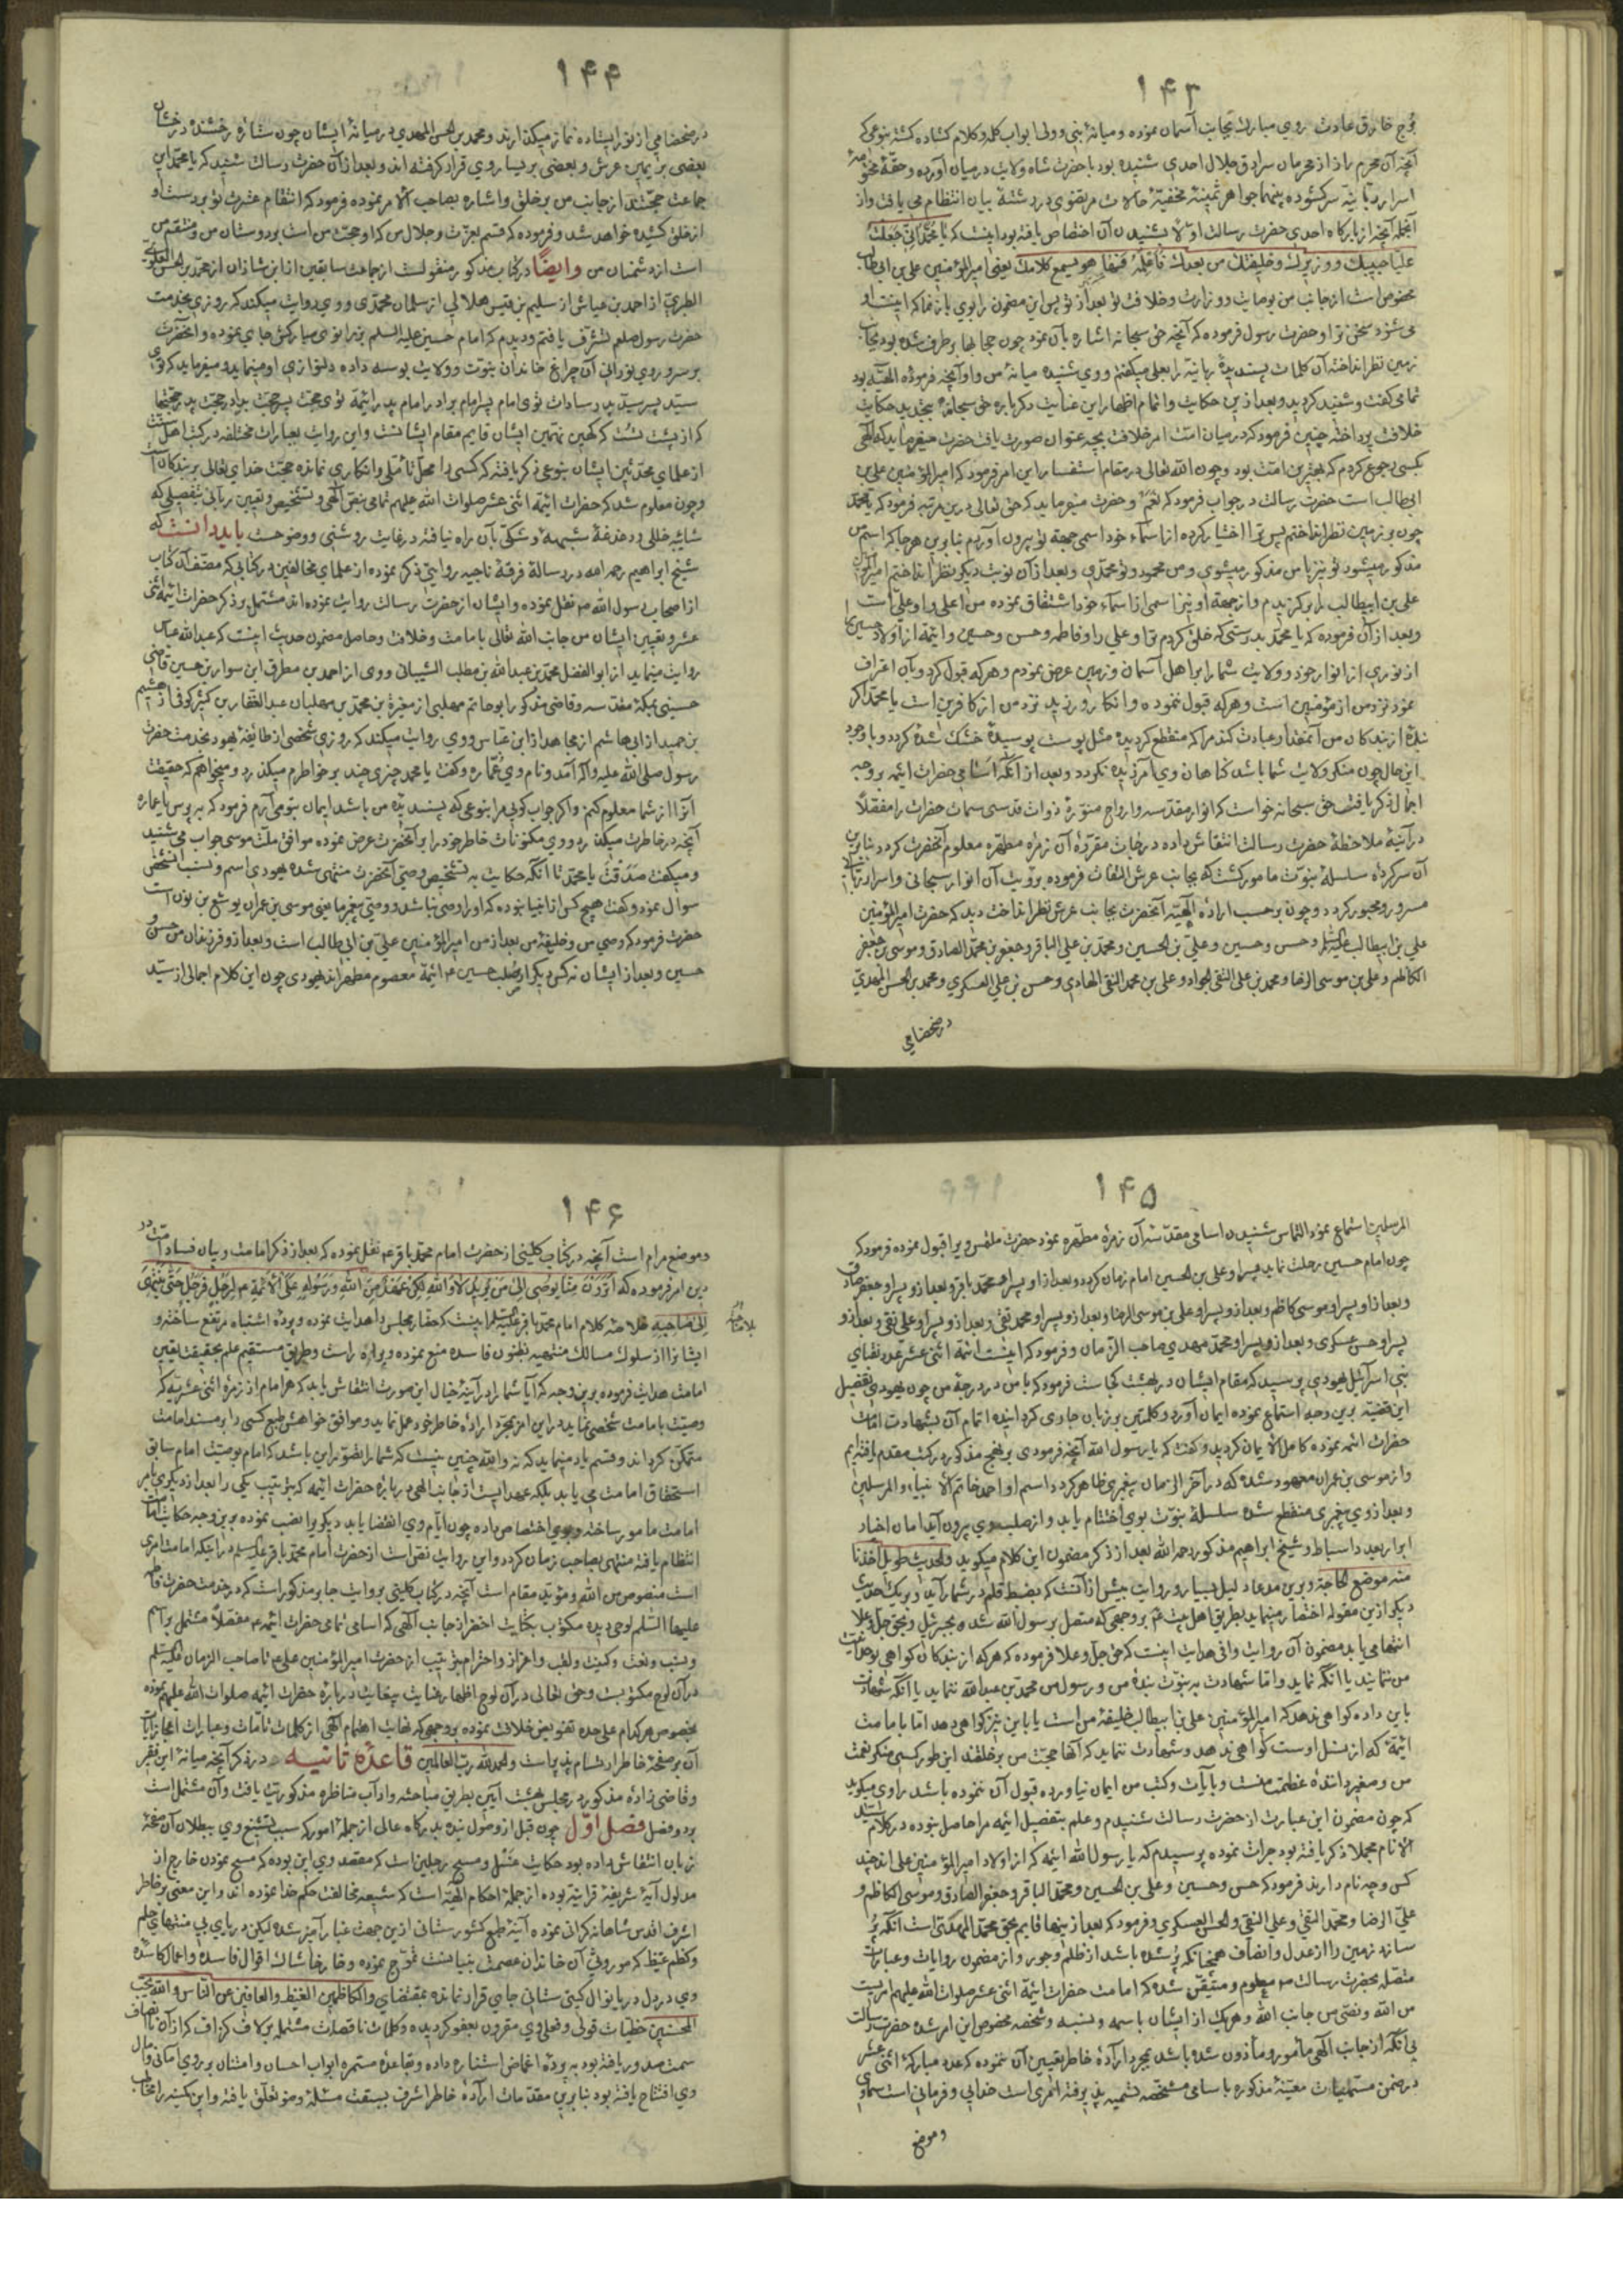 ۱۴۳
خارق عادت روی مبارک بجانب آسمان نموده و میانهٔ نبی و ولی ابواب کله و کلام کشاده کشته بنوعی که
آنچه آن محرم راز از محرمان سرادق جلال احدی شنیده بود با حضرت شاه ولایت در میان آورده و حقهٔ
اسرار ربانیه سرکشوده جواهر ثمینهٔ مخفیهٔ مرتضوی در رشتهٔ بیان انتظام می یافت و از
آنجمله آنچه از بارکاه احدی حضرت رسالت اولا بشنیدن آن اختصاص یافته بود اینست که یا محمد انی جعلت
علیا حبیبک و وزیرک و خلیفتک من بعدک هو یسمع کلامک یعنی امیرالمؤمنین علی بن ابیطالب
مخصوص است از جانب من بوصایت و وزارت و خلافت تو بعد از تو پس این مضمون را بوی باز نما که اینست او
می شنود سخن تو و حضرت رسول فرموده که آنچه حق سبحانه اشاره بآن نمود چون حجابها برطرف شده بود بجانب
زمین نظر انداخته آن کلمات پسندیدهٔ ربانیه را بعلی میکفتم و وی شنیده میانهٔ من و او آنچه فرمودهٔ الهیه بود
تمامی کفت و شنید کردید و بعد از این حکایت و اتمام اظهار این عنایت دکرباره حق سبحانه بتجدید حکایت
خلافت پرداخته چنین فرمود که در میان امت امر خلافت بچه عنوان صورت یافت حضرت میفرماید که الهی
بکسی رجوع کردم که بهترین امت بود و چون الله تعالی در مقام استفسار این امر فرمود که امیرالمؤمنین علی بن
ابی طالب است حضرت رسالت در جواب فرمود که نعم و حضرت میفرماید که حق تعالی درین مرتبه فرمود که یا محمد
چون بر زمین نظر انداختم پس ترا اختیار کرده از اسماء خود اسمی بجهة تو بیرون آوردم بنابرین هر جا که اسم من
مذکور میشود تو نیز با من مذکور میشوی و من محمود و تو محمدی و بعد از آن نوبت دیکر نظر انداختم امیرالمؤمنین
علی بن ابیطالب را برکزیدم و از جهة او نیز اسمی از اسماء خود اشتقاق نموده من اعلی و او علی است
و بعد از آن فرموده که یا محمد بدرستی که خلق کردم ترا و علی را و فاطمه و حسن و حسین و ایمهٔ از اولاد حسین را
از نوری از انوار خود و ولایت شما را بر اهل آسمان و زمین عرض نمودم و هر که قبول کرد و بآن اعتراف
نمود نزد من از مؤمنین است و هر که قبول ننموده و انکار ورزید نزد من از کافرین است یا محمد اکر
بندهٔ از بندکان من آنمقدار عبادت کند مرا که منقطع کردیده مثل پوست پوسیدهٔ خشک شده کردد و با وجود
این حال چون منکر ولایت شما باشد کناهان وی آمرزیده نکردد و بعد از آنکه اسامی حضرات ائمه بر وجه
اجمال ذکر یافت حق سبحانه خواست که انوار مقدسه و ارواح منورهٔ ذوات قدسی سمات حضرات را مفصلا
در آینهٔ ملاحظهٔ حضرت رسالت انتقاش داده درجات مقررهٔ آن زمرهٔ مطهره معلوم آنحضرت کردد بنابرین
آن سرکردهٔ سلسلهٔ نبوت مامور کشت که بجانب عرش التفات فرموده برؤیت آن انوار سبحانی و اسرار ربانی
مسرور و محبور کردد و چون برحسب ارادهٔ الهیه آنحضرت بجانب عرش نظر انداخت دید که حضرت امیرالمؤمنین
علی بن ابیطالب علیه السلام و حسن و حسین و علی بن الحسین و محمد بن علی الباقر و جعفر بن محمد الصادق و موسی بن جعفر
الکاظم و علی بن موسی الرضا و محمد بن علی التقی الجواد و علی بن محمد النقی الهادی و حسن بن علی العسکری و محمد بن الحسن المهدی
در ضحضاحی
۱۴۴
در ضحضاحی از نور ایستاده نماز میکذارند و محمد بن الحسن المهدی در میانهٔ ایشان چون ستارهٔ رخشندهٔ درخشان
بعضی بر یمین عرش و بعضی بر یسار وی قرار کرفته اند و بعد از آن حضرت رسالت شنید که یا محمد این
جماعت حجتند از جانب من بر خلق و اشاره بصاحب الامر نموده فرمود که انتقام عترت تو بر دست او
از خلق کشیده خواهد شد و فرموده که قسم بعزت و جلال من که او حجت من است بر دوستان من و منتقم من
است از دشمنان من وایضا در کتاب مذکور منقولست از جماعت سابقین از ابن شاذان از محمد بن الحسن العلوی
الطبری از احمد بن عیاش از سلیم بن قیس هلالی از سلمان محمدی و وی روایت میکند که روزی بخدمت
حضرت رسول صلعم تشرف یافتم و دیدم که امام حسین علیه السلم بزانوی مبارکش جای نموده و آنحضرت
بر سر و روی نورانی آن چراغ خاندان نبوت و ولایت بوسه داده دلنوازی او مینماید و میفرماید که توی
سید پسر سید پدر سادات توی امام پسر امام برادر امام پدر ائیمهٔ توی حجت پسر حجت برادر حجت پدر حجتها
که از پشت تست که نهمین ایشان قایم مقام ایشانست و این روایت بعبارات مختلفه در کتب اهل سنت
از علمای محدثین ایشان بنوعی ذکر یافته که کسی را محل تاملی و انکاری نمانده حجت خدای تعالی بر بندکان است
و چون معلوم شد که حضرات ائیمه اثنی عشر صلوات الله علیهم تمامی بنص الهی و تشخیص و تعیین ربانی بتفصیلی که
شایبهٔ خللی و دغدغهٔ شبهه و شکی بآن راه نیافته در غایت روشنی و وضوحست باید دانست که
شیخ ابراهیم رحمه الله در رسالهٔ فرقهٔ ناجیه روایتی ذکر نموده از علمای مخالفین در کتابی که مصنف آن کتاب
از اصحاب رسول الله نقل نموده و ایشان از حضرت رسالت روایت نموده اند مشتمل بر ذکر حضرات ائیمه اثنی
عشر و تعیین ایشان من جانب الله تعالی بامامت و خلافت و حاصل مضمون حدیث اینست که عبدالله عباس
روایت مینماید از ابوالفضل محمد بن عبدالله بن مطلب الشیبانی و وی از احمد بن مطرق ابن سوار بن حسین قاضی
حسینی بمکهٔ مقدسه و قاضی مذکور از ابو حاتم مهلبی از مغیرة بن محمد بن مهلبان عبد الغفار بن کثیر کوفی از هشیم
بن حمید از ابی هاشم از مجاهد از ابن عباس و وی روایت میکند که روزی شخصی از طایفهٔ یهود بخدمت حضرت
رسول صلی الله علیه و آله آمد و نام وی نعماره و کفت یا محمد چیزی چند بر خاطرم میکذرد و میخواهم که حقیقت
آنرا از شما معلوم کنم و اکر جواب کوئی مرا بنوعی که پسندیدهٔ من باشد ایمان بتو می آرم فرمود که بپرس یا عماره
آنچه در خاطرت میکذرد و وی مکنونات خاطر خود را بر آنحضرت عرض نموده موافق ملت موسی جواب می شنید
و میکفت صدقت یا محمد تا آنکه حکایت به تشخیص وصی آنحضرت منتهی شده یهودی اسم و نسب آنشخص
سوال نمود و کفت هیچ کس از انبیا نبوده که او را وصی نباشد و وصی پیغمبر ما یعنی موسی بن عمران یوشع بن نون است
حضرت فرمود که وصی من و خلیفهٔ من بعد از من امیرالمؤمنین علی بن ابی طالب است و بعد از و فرزندان من حسن و
حسین و بعد از ایشان نه کس دیکر از صلب حسین ائیمهٔ معصوم مطهراند یهودی چون این کلام اجمالی از سید
۱۴۵
المرسلین استماع نمود التماس شنیدن اسامی مقدسهٔ آن زمرهٔ مطهره نمود حضرت ملتمس ویرا قبول نموده فرمود که
چون امام حسین رحلت نماید پسر او علی بن الحسین امام زمان کردد و بعد از او پسر او محمد باقر و بعد از و پسر او جعفر صادق
و بعد از او پسر او موسی کاظم و بعد از و پسر او علی بن موسی الرضا و بعد از و پسر او محمد تقی و بعد از و پسر او علی نقی و بعد از و
پسر او حسن عسکری و بعد از و پسر او محمد مهدی صاحب الزمان و فرمود که اینست ائمهٔ اثنی عشر عدد نقبای
بنی اسرائیل یهودی پرسید که مقام ایشان در بهشت کجاست فرمود که با من در درجهٔ من چون یهودی بتفصیل
این قضیه برین وجه استماع نموده ایمان آورد و کلمتین بر زبان جاری کردانیده اتمام آن بشهادت امامت
حضرات ائمه نموده کامل الایمان کردید و کفت که یا رسول الله آنچه فرمودی بر نهج مذکور در کتب مقدم یافته ایم
و از موسی بن عمران معهود شده که در آخر الزمان پیغمبری ظاهر کردد اسم او احمد خاتم الانبیاء و المرسلین
و بعد از وی پیغمبری منقطع شده سلسلهٔ نبوت بوی اختتام یابد و از صلب وی بیرون آید امامان اخیار
ابرار بعدد اسباط و شیخ ابراهیم مذکور رحمه الله بعد از ذکر مضمون این کلام میکوید والحدیث طویل اخذنا
منه موضع الحاجة و برین مدعا دلیل بسیار و روایت بیش از آنست که بضبط قلم در شمار آید و بر یک حدیث
دیکر ازین مقوله اختصار مینماید بطریق اهل بیت بر وجهی که متصل برسول الله شده بجبرئیل و بحق جل و علا
انتها می یابد مضمون آن روایت وافی هدایت اینست که حق جل و علا فرموده که هر که از بندکان کواهی بوحدانیت
من ننماید یا آنکه نماید و اما شهادت به نبوت بندهٔ من و رسول من محمد بن عبدالله ننماید یا آنکه شهادت
باین داده کواهی ندهد که امیرالمؤمنین علی بن ابیطالب خلیفهٔ من است یا باین نیز کواهی دهد اما بامامت
ائیمهٔ که از نسل اوست کواهی ندهد و شهادت ننماید که آنها حجت من بر خلقند این طور کسی منکر نعمت
من و صغیر دانندهٔ عظمت منست و بآیات و کتب من ایمان نیاورده قبول آن ننموده باشد راوی میکوید
که چون مضمون این عبارت از حضرت رسالت شنیدم و علم بتفصیل ائیمه مرا حاصل نبوده در کلام سید
الانام مجملا ذکر یافته بود جرات نموده پرسیدم که یا رسول الله ایمه که از اولاد امیرالمؤمنین علی اند چند
کس و چه نام دارند فرمود که حسن و حسین و علی بن الحسین و محمد الباقر و جعفر الصادق و موسی الکاظم و
علی الرضا و محمد التقی و علی النقی و الحسن العسکری و فرمود که بعد از اینها قایم بحق محمد المهدیست آنکه پر
سازد زمین را از عدل و انصاف همچنانکه پر شده باشد از ظلم و جور و از مضمون روایات و عبارات
متصله بحضرت رسالت معلوم و متیقن شده که امامت حضرات ائیمهٔ اثنی عشر صلوات الله علیهم امریست
من الله و نصی من جانب الله و هر یک از ایشان باسمه و نسبه و شخصه مخصوص این امر شده حضرت رسالت
بی آنکه از جانب الهی مامور و ماذون شده باشد بمجرد ارادهٔ خاطر تعیین آن ننموده که عدد مبارکهٔ اثنی عشر
در ضمن مسمیات معینهٔ مذکوره باسامی مشخصه تسمیه پذیرفته امری است خدایی و فرمانی است سماوی
و موضع
۱۴۶
و موضع مرام است آنچه در کتاب کلینی از حضرت امام محمد باقر نقل نموده که بعد از ذکر امامت و بیان فساد امت در
دین امر فرموده که اترون من یوصی الی من یرید لا والله لکن عهد من الله و رسوله علی الائمة لرجل فرجل حتی ینتهی
الی صاحبه خلاصهٔ کلام امام محمد باقر علیه السلم اینست که حضار مجلس را هدایت نموده و پردهٔ اشتباه مرتفع ساخته و
ایشانرا از سلوک مسالک منتهیه بظنون فاسده منع نموده و براه راست و طریق مستقیم علم بحقیقت تعیین
امامت هدایت فرموده برین وجه که آیا شما را در آینهٔ خیال این صورت انتقاش یابد که هر امام از زمرهٔ اثنی عشریه که
وصیت بامامت شخصی نماید در این امر بمجرد ارادهٔ خاطر خود عمل نماید و موافق خواهش طبع کسی را بر مسند امامت
متمکن کرداند و قسم یاد مینماید که نه والله چنین نیست که شما را تصور این باشد که امام بوصیت امام سابق
استحقاق امامت می یابد بلکه عهدیست از جانب الهی در بارهٔ حضرات ائیمه که بترتیب یکی را بعد از دیکری بامر
امامت مامور ساخته و بوی اختصاص داده چون ایام وی انقضا یابد دیکریرا نصب نموده برین وجه حکایت امامت
انتظام یافته منتهی بصاحب زمان کردد و این روایت نص است از حضرت امام محمد باقر علیه السلم در اینکه امامت امری
است منصوص من الله و مؤید مقام است آنچه در کتاب کلینی بروایت جابر مذکور است که در خدمت حضرت فاطمه
علیها السلم لوحی دیده مکتوب بکتابت اخضر از جانب الهی که اسامی تمامی حضرات ائیمه مفصلا مشتمل بر اسم
و نسب و نعت و کنیت و لقب و اعزاز و احترام بترتیب از حضرت امیرالمؤمنین علی تا صاحب الزمان علیه السلم
در آن لوح مکتوبست و حق تعالی در آن لوح اظهار عنایت بیغایت در بارهٔ حضرات ائیمه صلوات الله علیهم نموده
بخصوص هر کدام علی حده تفویض خلافت نموده بر وجهی که نهایت اهتمام الهی از کلمات تامات و عبارات اعجاز آیات
آن بر صفحهٔ خاطر ارتسام پذیراست والحمدلله رب العالمین قاعدهٔ ثانیه در ذکر آنچه میانهٔ این فقیر
و قاضی زادهٔ مذکور در مجلس بهشت آیین بطریق مباحثه و آداب مناظره مذکوریت یافت و آن مشتمل است
بر دو فصل فصل اول چون قبل از وصول بنده بدرکاه عالی از جملهٔ امور که سبب تشنیع وی ببطلان آن
زبان انتقاش داده بود حکایت غسل و مسح رجلین است که معتقد وی این بوده که مسح نمودن خارج از
مدلول آیهٔ شریفهٔ قرآنیه بوده از جملهٔ احکام الهیه است که شیعه مخالفت حکم خدا نموده اند و این معنی بر خاطر
اشرف اقدس شاهانه کرانی نموده آینهٔ طبع کشورستانی ازین جهت غبار آمیز شده لیکن دریای بی منتهای حلم
و کظم غیظ که موروثی آن خاندان عصمت بنیانست تموج نموده و خار خاشاک اقوال فاسده و اعمال کاسدهٔ
وی در دل دریانوال کیتی ستانی جای قرار نمانده بمقتضای والکاظمین الغیظ والعافین عن الناس والله یحب
المحسنین خطیات قولی و فعلی وی مقرون بعفو کردیده و کلمات ناقصات مشتمله بر لاف کزاف که از آن ناانصاف
سمت صدور یافته بود به پردهٔ اغماض استتاره داده و بقاعدهٔ مستمره ابواب احسان و امتنان بر روی امانی و آمال
وی افتتاح یافته بود بنابرین مقدمات ارادهٔ خاطر اشرف بسبقت مسئلهٔ وضو تعلق یافته و این کمینه را مخاطب